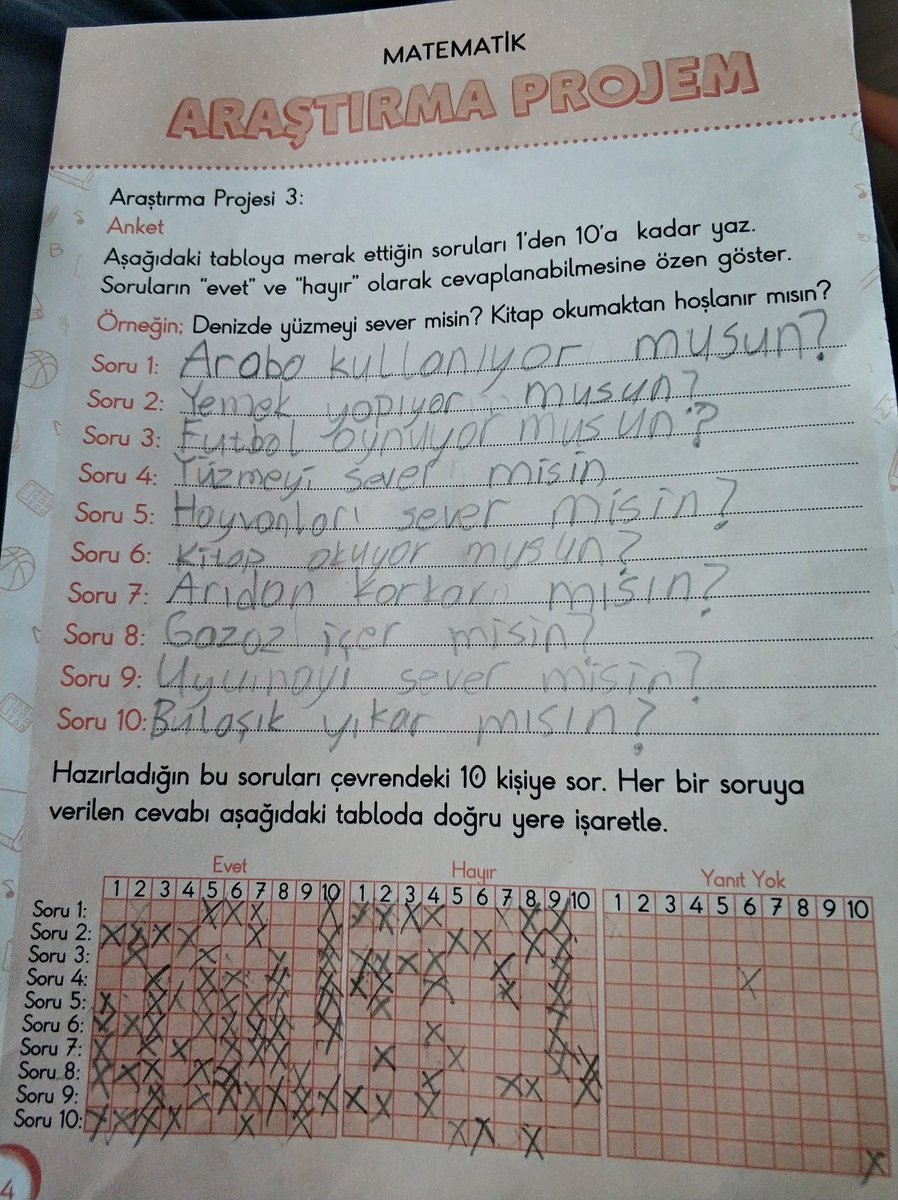 MATEMATİK
ARAŞTIRMA PROJEM
Araştırma Projesi 3:
Anket
Aşağıdaki tabloya merak ettiğin soruları 1'den 10'a kadar yaz.
Soruların “evet” ve “hayır” olarak cevaplanabilmesine özen göster.
Örneğin; Denizde yüzmeyi sever misin? Kitap okumaktan hoşlanır mısın?
Soru 1: Araba kullanıyor musun?
Soru 2: Yemek yapıyor musun?
Soru 3: Futbol oynuyor musun?
Soru 4: Yüzmeyi sever misin
Soru 5: Hayvanları sever misin?
Soru 6: Kitap okuyor musun?
Soru 7: Arıdan korkar mısın?
Soru 8: Gazoz içer misin?
Soru 9: Uyumayı sever misin?
Soru 10: Bulaşık yıkar mısın?
Hazırladığın bu soruları çevrendeki 10 kişiye sor. Her bir soruya
verilen cevabı aşağıdaki tabloda doğru yere işaretle.
Evet Hayır Yanıt Yok
1 2 3 4 5 6 7 8 9 10 1 2 3 4 5 6 7 8 9 10 1 2 3 4 5 6 7 8 9 10
Soru 1:
Soru 2:
Soru 3:
Soru 4:
Soru 5:
Soru 6:
Soru 7:
Soru 8:
Soru 9:
Soru 10:
4